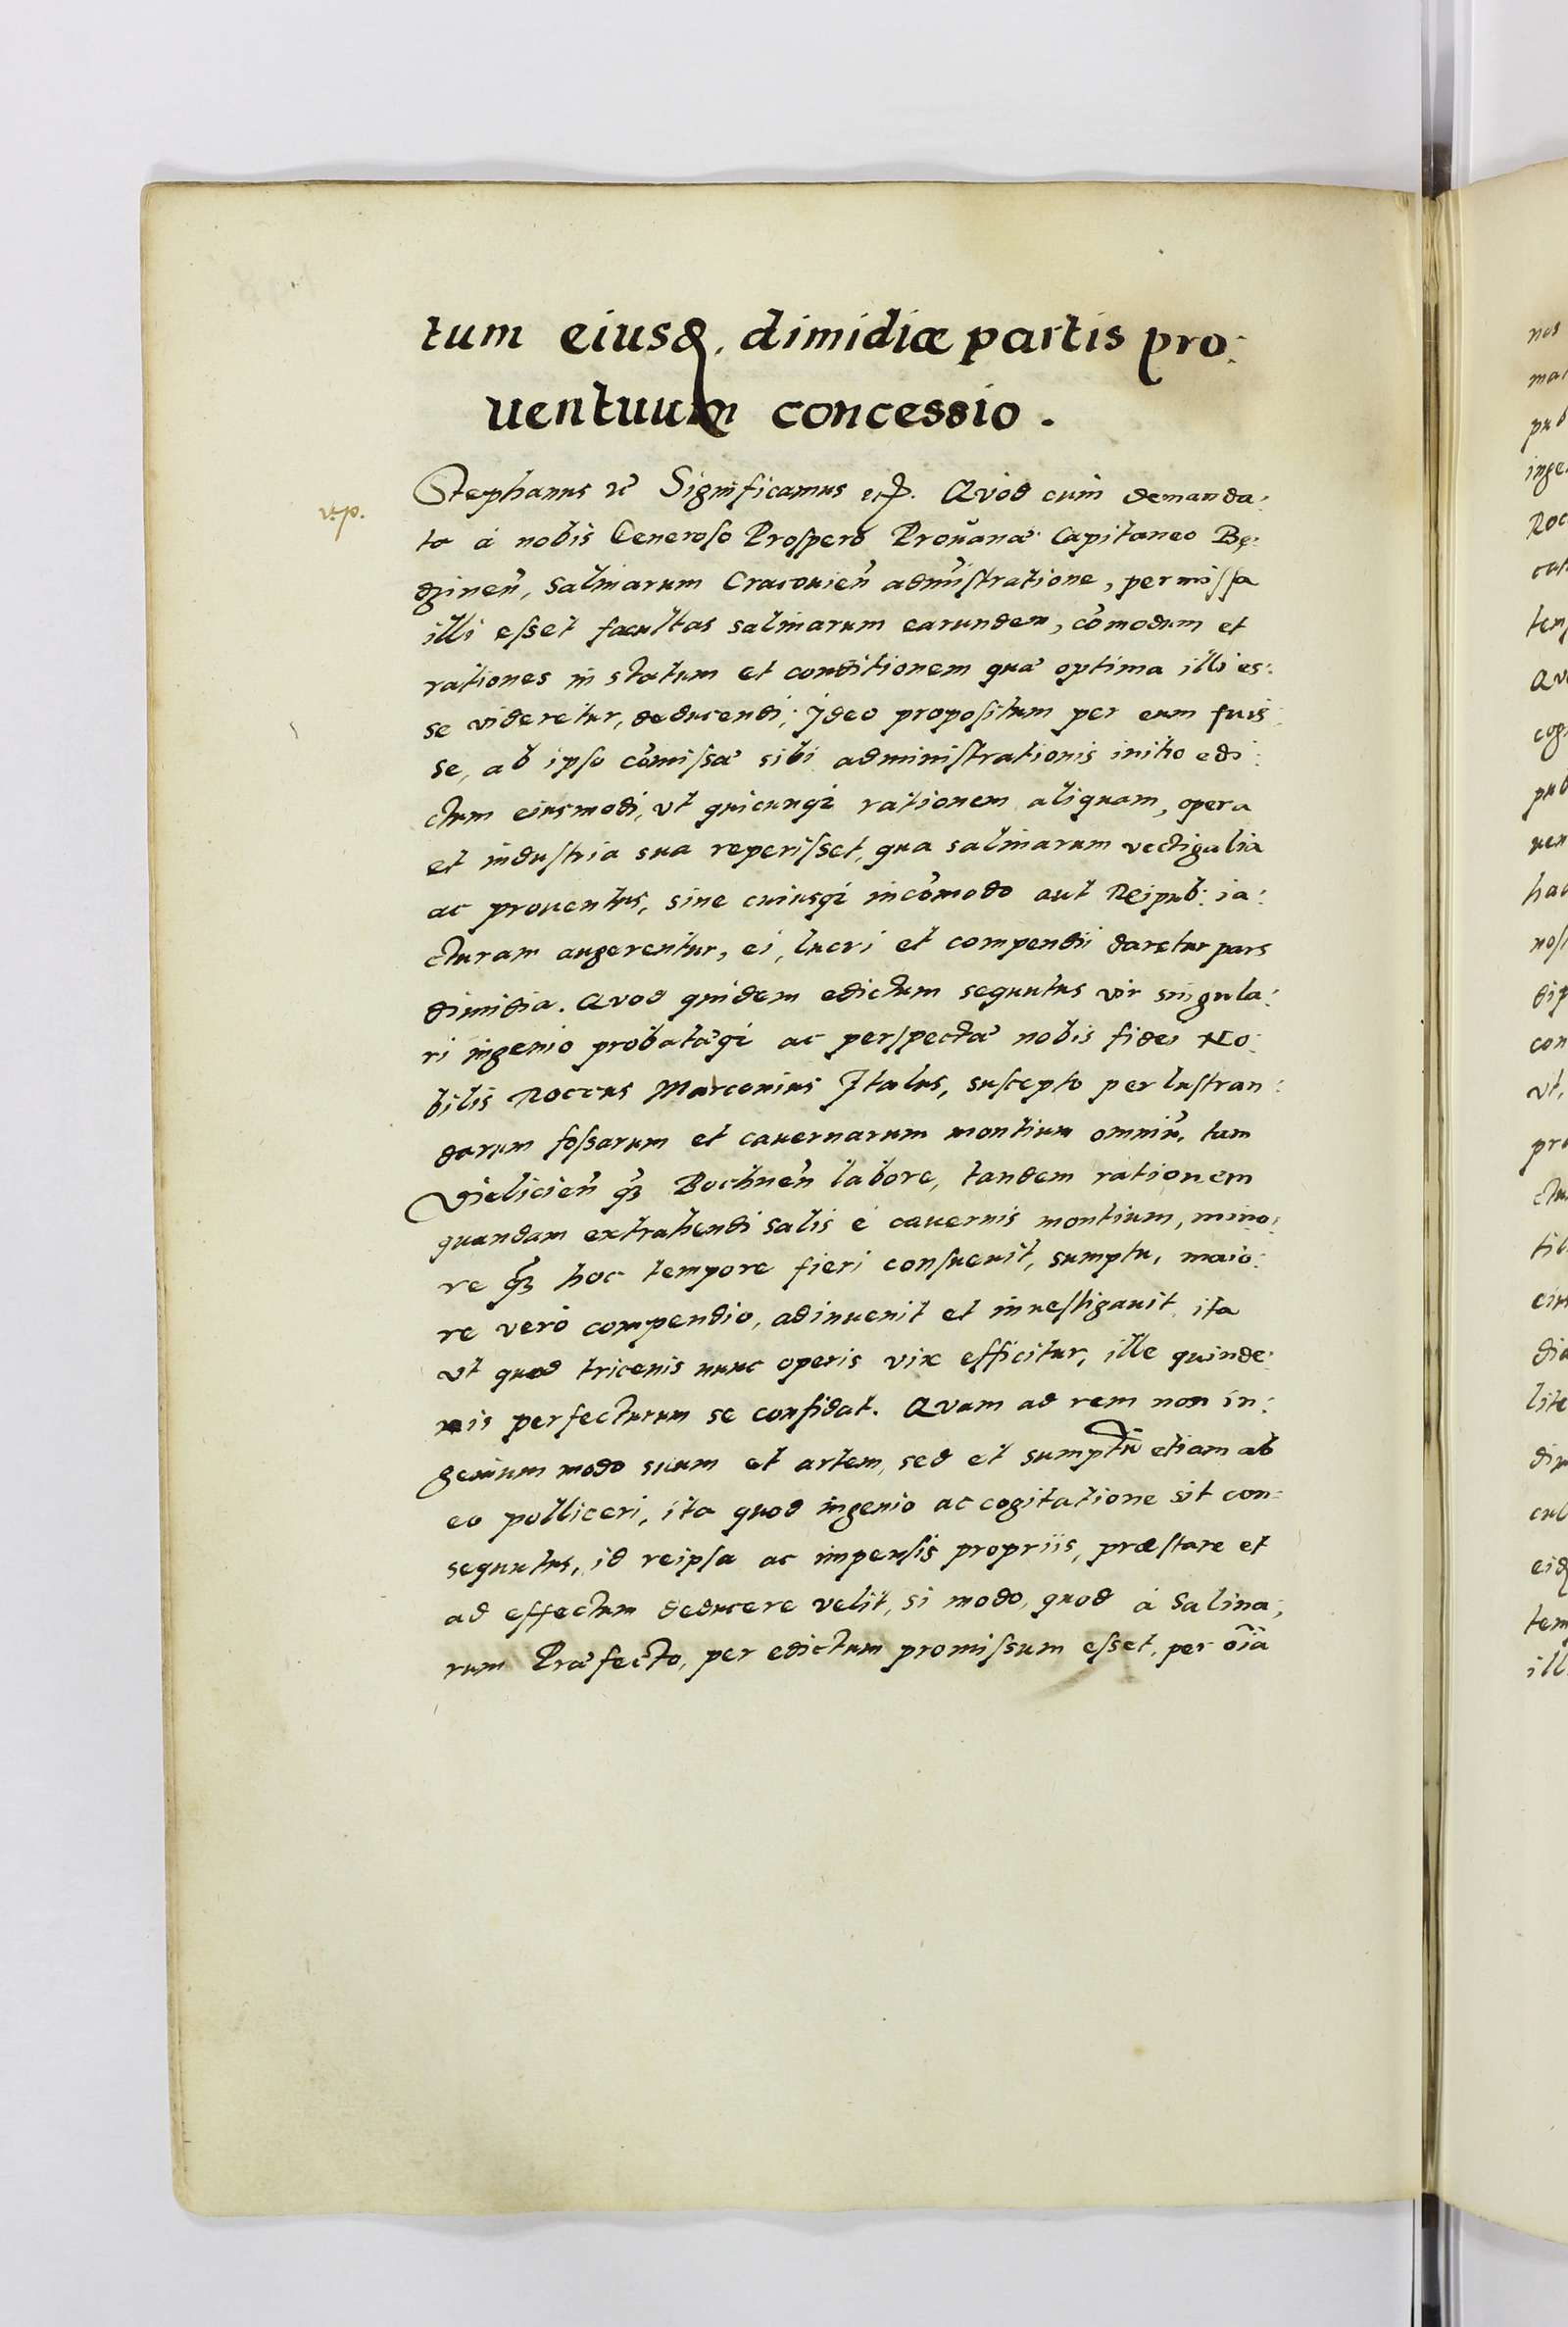 tum eiusq. dimidiæ partis pro:
uentuum concessio.
Stephanus &c Significamus etc. Quod cum demanda:
to à nobis Generoso Prospero Prouanæ Capitaneo Bę:
dzinen̄, Salinarum Cracouien̄ admīstratione, permissa
illi esset facultas salinarum earundem, com̄odum et
rationes in statum et conditionem quæ optima illi es:
se videretur, deducendi; Ideo propositum per eum fuis:
se, ab ipso com̄issæ sibi administrationis initio edi:
ctum eiusmodi, vt quicunq; rationem aliquam, opera
et industria sua reperisset, qua salinarum vectigalia
ac prouentus, sine cuiusq; incom̄odo aut Reipub: ia:
cturam augerentur, ei, lucri et compendii daretur pars
dimidia. Quod quidem edictum sequutus vir singula:
ri ingenio probatæq; ac perspectæ nobis fidei No:
bilis Roccus Marconius Italus, suscepto perlustran:
darum fossarum et cauernarum montium omniū, tam
Vielicien̄ q̃ȝ Bochnen̄ labore, tandem rationem
quandam extrahendi salis è cauernis montium, mino:
re q̃ȝ hoc tempore fieri consueuit, sumptu, maio:
re verò compendio, adinuenit et inuestigauit, ita
vt quod tricenis nunc operis vix efficitur, ille quinde:
nis perfecturum se confidat. Quam ad rem non in:
genium modo suum et artem, sed et sumptū etiam ab
eo polliceri, ita quod ingenio ac cogitatione sit con:
sequutus, id reipsa ac impensis propriis, præstare et
ad effectum deducere velit, si modo, quod à Salina:
rum Præfecto, per edictum promissum esset, per oīa